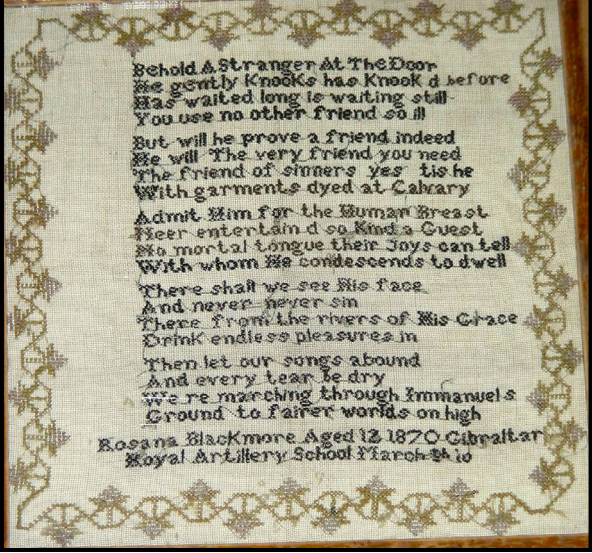 Behold A Stranger At The Door
He gently Knooks has Knook d before
Has waited long is waiting still
You use no other friend so ill
But will he prove a friend indeed
He will The very friend you need
The friend of sinners yes tis he
With garments dyed at Calvary
Admit Him for the Human Breast
Neer entertain d so Kind a Guest
No mortal tongue their Joys can tell
With whom He condescends to dwell
There shall we see His face
And never never sin
There from the rivers of His Grace
Drink endless pleasures in
Then let our songs abound
And every tear be dry
We re marching through Immanuels
Ground to fairer worlds on high
Rosana Blackmore Aged 12 1870 Gibraltar
Royal Artillery School March th 10